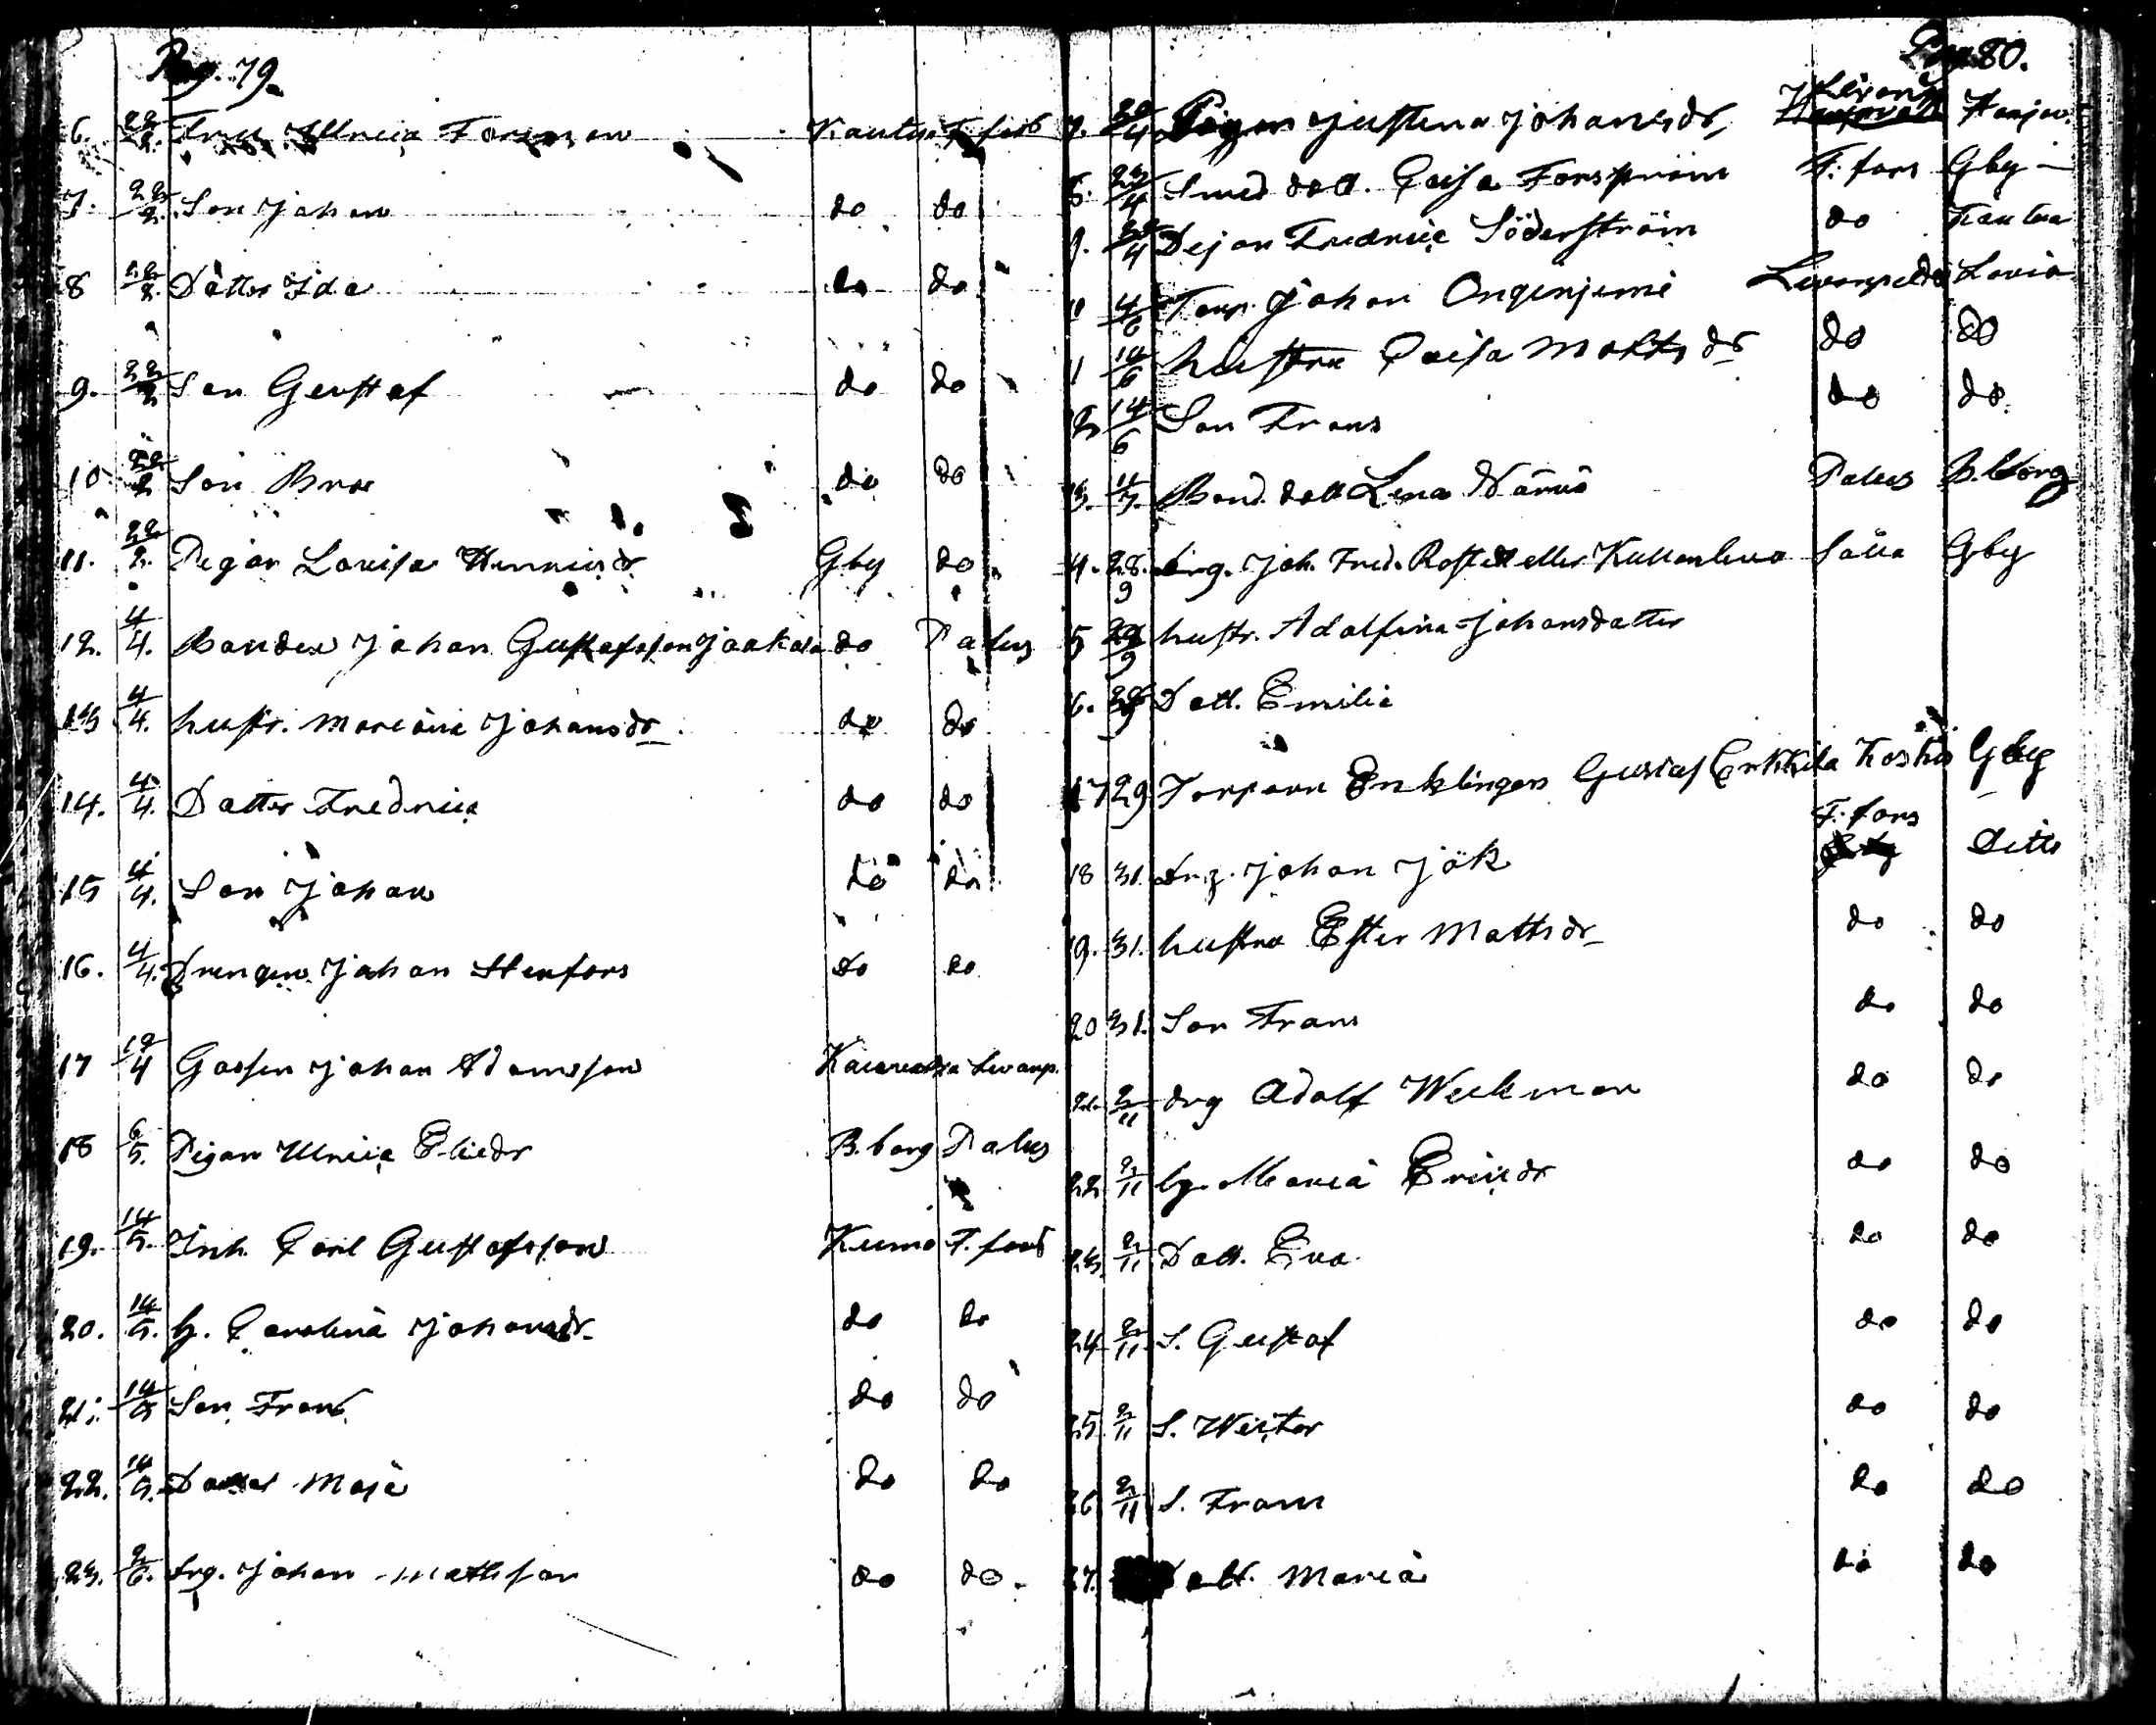 Pag. 79.
6. 22/2. Fru Ulrica Forsman Kautua F.fors
7. 22/2. Son Johan do do
8 22/2. Dotter Ida do do
9. 22/2 Son Gustaf do do
10 22/2 Son do do
11. 22/2. Pigan Lovisa Henricsdr Gby do
12. 4/4. Bonden Johan Gustafsson Jaakola do Palus
13 4/4. hustr. Mariana Johansdr do do
14. 4/4. Dotter Fredrica do do
15 4/4. Son Johan do do
16. 4/4. Drengen Johan Stenfors do do
17 12/4 Gossen Johan Adamsson Levanp.
18 6/5. Pigan Ulrica Eliedr B.borg Palus
19. 14/5. Inh. Carl Gustafsson Kumo F.fors
20. 14/5. h. Carolina Johansdr do do
21. 14/5 Son Frans do do
22. 14/5. Dotter Maja do do
23. 2/6. drg. Johan Mattsson do do.
Pag. 80.
7. 20/4 Pigan Justina Johansdr Harjav.
8. 23/4 Smed dott. Caisa Forsström F.fors Gby
9. Pejan Fredrica Söderström do Kautua
4/6 Torp. Johan Ongenjemi Levanpelda Lavia
1 14/6 hustru Caisa Mattsdr do do
2 14/6 Son Frans do do.
3. 11/7. Bond. dott Lena Närvä Palus B.borg
4. 28/9 drg. Joh. Fred. Rostedt eller Kullanleua Gby
5 28/9 hustr. Adolfina Johansdotter
6. 28/9 Dott. Emilia
17 29 Torparn Enklingen Gustaf Erkkila Koskis Gby
F.fors
18 31. drg. Johan Jök Ditto
19. 31. hustru Ester Mattsdr do do
20 31. Son Frans do do
21. 2/11 drg Adolf Weckman do do
22 2/11 h. Maria Ericsdr do do
23. 2/11 Dott. Eva do do
24 2/11 S. Gustaf do do
25 2/11 S. Victor do do
26 2/11 S. Frans do do
27. Dott. Maria do do